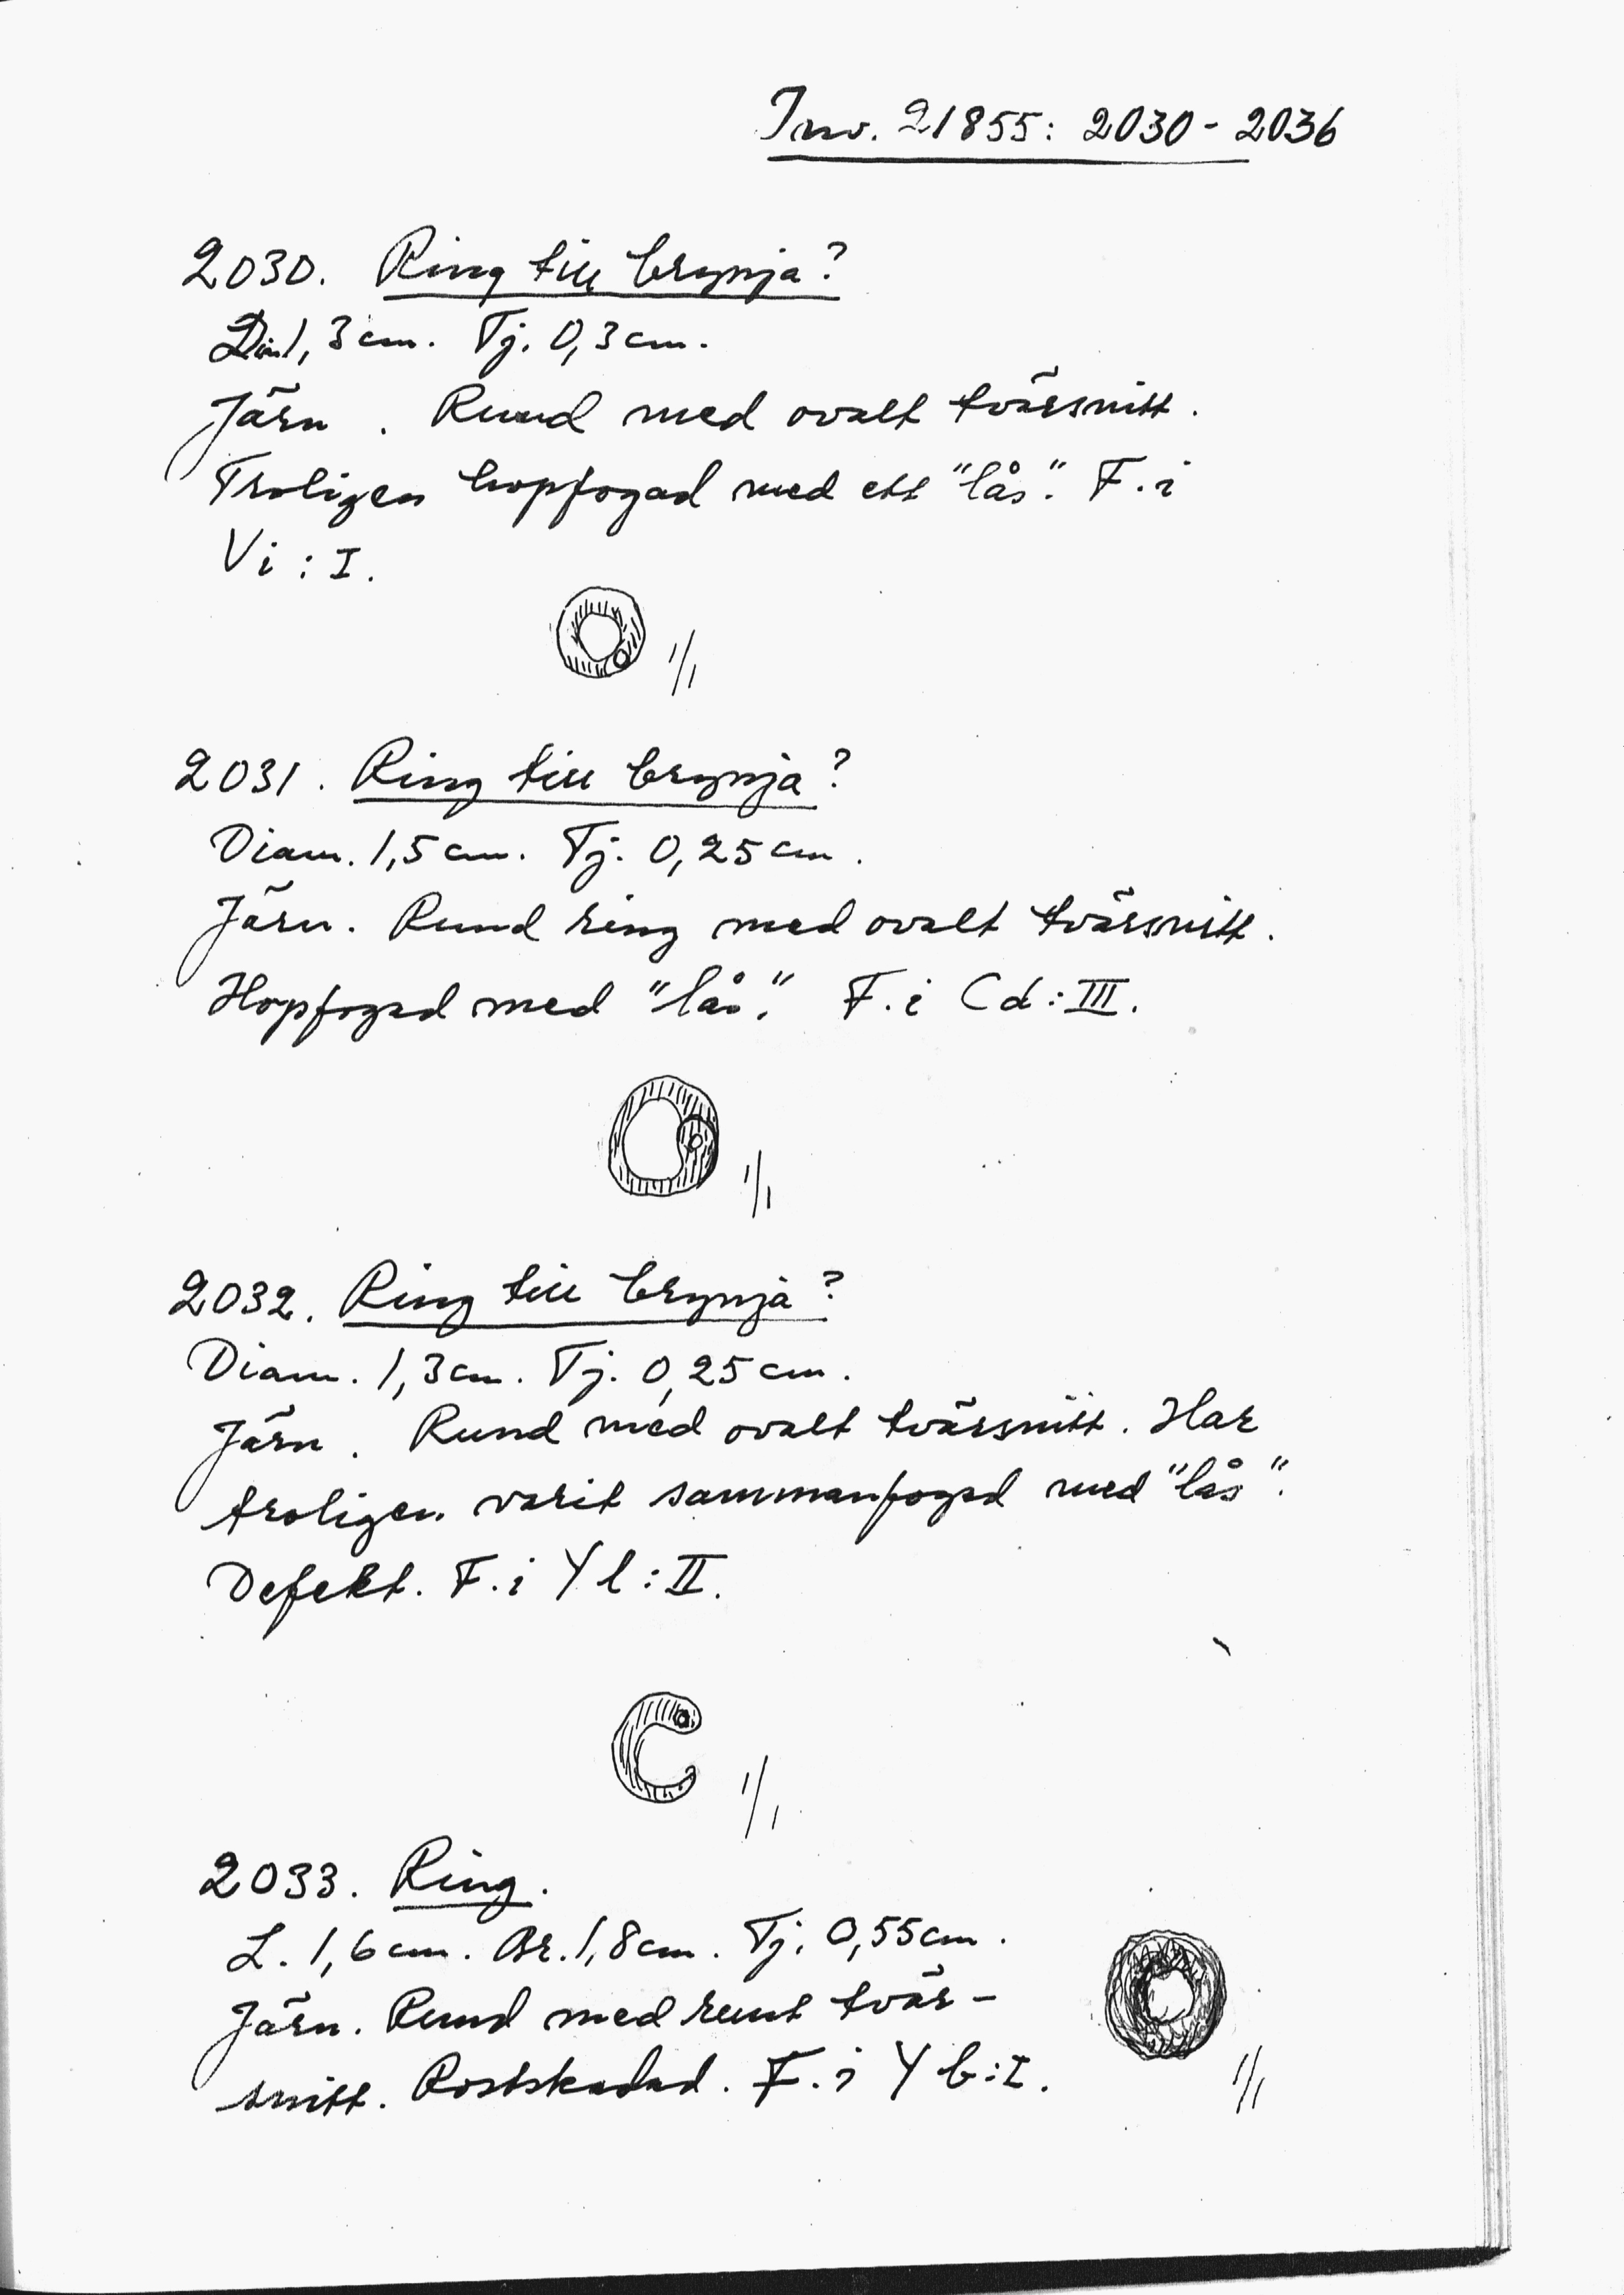 Inv. 21855: 2030 - 2036
2030. Ring till brynja?
Dia. 1,3 cm. Tj. 0,3 cm.
Järn. Rund med ovalt tvärsnitt.
Troligen hopfogad med ett "lås". F. i
Vi : I.
1/1
2031. Ring till brynja?
Diam. 1,5 cm. Tj. 0,25 cm.
Järn. Rund ring med ovalt tvärsnitt.
Hopfogad med "lås". F. i Cd : III.
1/1
2032. Ring till brynja?
Diam. 1,3 cm. Tj. 0,25 cm.
Järn. Rund med ovalt tvärsnitt. Har
troligen varit sammanfogad med "lås".
Defekt. F. i Yl : II.
1/1
2033. Ring.
L. 1,6 cm. Br. 1,8 cm. Tj. 0,55 cm.
Järn. Rund med runt tvär-
snitt. Rostskadad. F. i Yb : I.
1/1